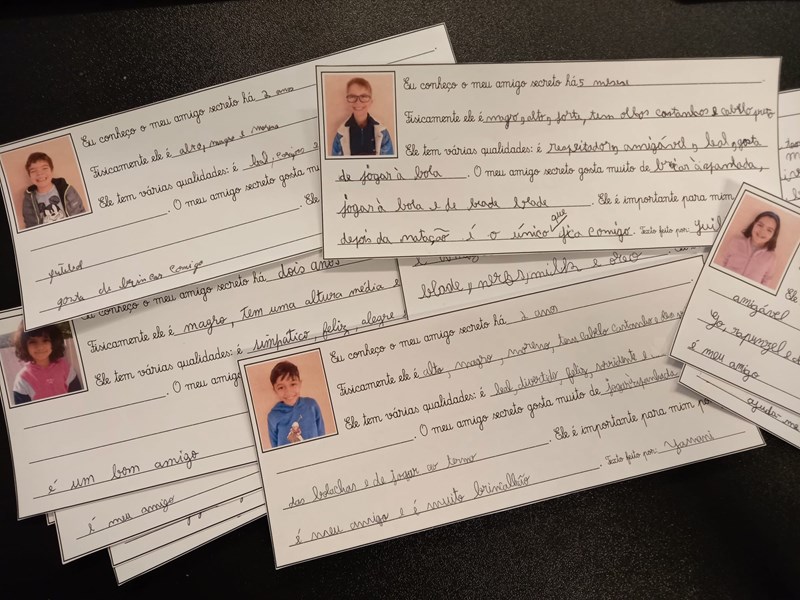 Eu conheço o meu amigo secreto há 2 anos
Fisicamente ele é alto, magro e moreno
Ele tem várias qualidades: é leal,
. O meu amigo secreto gosta
. Ele
futebol
gosta de brincar comigo
Eu conheço o meu amigo secreto há 5 meses
Fisicamente ele é magro, alto, forte, tem olhos castanhos e cabelo preto
Ele tem várias qualidades: é respeitador, amigável, leal, gosta
de jogar à bola . O meu amigo secreto gosta muito de à apanhada,
jogar à bola e de blade blade . Ele é importante para mim
depois da natação é o único que fica comigo. Texto feito por:
Eu conheço o meu amigo secreto há dois anos
Fisicamente ele é magro, tem uma altura média e
Ele tem várias qualidades: é simpático, feliz, alegre
. O meu
é um bom amigo
é meu amigo
blade, nerfs, milk e oreo
Eu conheço o meu amigo secreto há 2 ano
Fisicamente ele é alto, magro, moreno, tem cabelo castanho e
Ele tem várias qualidades: é leal, divertido, feliz, sorridente e
. O meu amigo secreto gosta muito de jogar à apanhada
das bolachas e de jogar ao . Ele é importante para mim
é meu amigo e é muito brincalhão . Texto feito por: Yasmani
Ele é
amigável
Go, rapunzel e
é meu amigo
ajuda-me